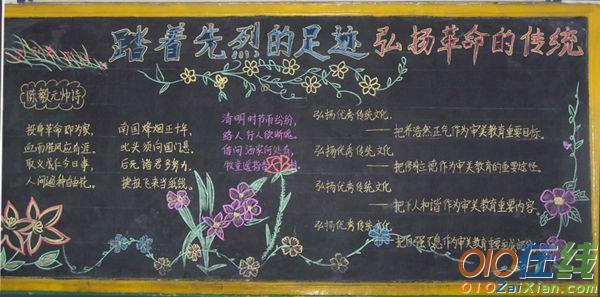 踏着先烈的足迹 弘扬革命的传统
陈毅元帅诗
投身革命即为家,
血雨腥风应有涯。
取义成仁今日事,
人间遍种自由花。
南国烽烟正十年,
此头须向国门悬。
后死诸君多努力,
捷报飞来当纸钱。
清明时节雨纷纷,
路人行人欲断魂。
借问酒家何处有
牧童遥指
弘扬优秀传统文化
——把养浩然正气作为审美教育重要目标。
弘扬优秀传统文化
——把修身立德作为审美教育的重要途径。
弘扬优秀传统文化
——把天人和谐作为审美教育重要内容。
弘扬优秀传统文化
——把自强不息作为审美教育重要
010在线
010ZaiXian.com